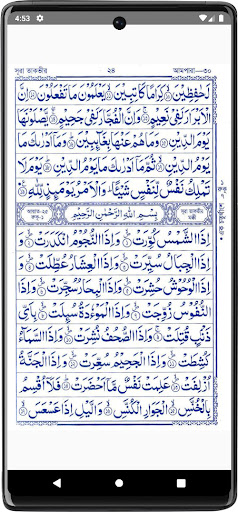 4:53
সূরা তাকভীর ২৪ আমপারা—৩০
لَحٰفِظِيْنَ ۝ كِرَامًا كَاتِبِيْنَ ۝ يَعْلَمُوْنَ مَا تَفْعَلُوْنَ ۝ اِنَّ
الْاَبْرَارَ لَفِيْ نَعِيْمٍ ۝ وَاِنَّ الْفُجَّارَ لَفِيْ جَحِيْمٍ ۝ يَّصْلَوْنَهَا
يَوْمَ الدِّيْنِ ۝ وَمَا هُمْ عَنْهَا بِغَآئِبِيْنَ ۝ وَمَآ اَدْرٰىكَ مَا
يَوْمُ الدِّيْنِ ۝ ثُمَّ مَآ اَدْرٰىكَ مَا يَوْمُ الدِّيْنِ ۝ يَوْمَ لَا
تَمْلِكُ نَفْسٌ لِّنَفْسٍ شَيْئًا ؕ وَالْاَمْرُ يَوْمَئِذٍ لِّلّٰهِ ۝
بِسْمِ اللّٰهِ الرَّحْمٰنِ الرَّحِيْمِ
اِذَا الشَّمْسُ كُوِّرَتْ ۝ وَاِذَا النُّجُوْمُ انْكَدَرَتْ ۝
وَاِذَا الْجِبَالُ سُيِّرَتْ ۝ وَاِذَا الْعِشَارُ عُطِّلَتْ ۝
وَاِذَا الْوُحُوْشُ حُشِرَتْ ۝ وَاِذَا الْبِحَارُ سُجِّرَتْ ۝ وَاِذَا
النُّفُوْسُ زُوِّجَتْ ۝ وَاِذَا الْمَوْءٗدَةُ سُئِلَتْ ۝ بِاَيِّ
ذَنْۢبٍ قُتِلَتْ ۝ وَاِذَا الصُّحُفُ نُشِرَتْ ۝ وَاِذَا السَّمَآءُ
كُشِطَتْ ۝ وَاِذَا الْجَحِيْمُ سُعِّرَتْ ۝ وَاِذَا الْجَنَّةُ
اُزْلِفَتْ ۝ عَلِمَتْ نَفْسٌ مَّآ اَحْضَرَتْ ۝ فَلَآ اُقْسِمُ
بِالْخُنَّسِ ۝ الْجَوَارِ الْكُنَّسِ ۝ وَالَّيْلِ اِذَا عَسْعَسَ ۝